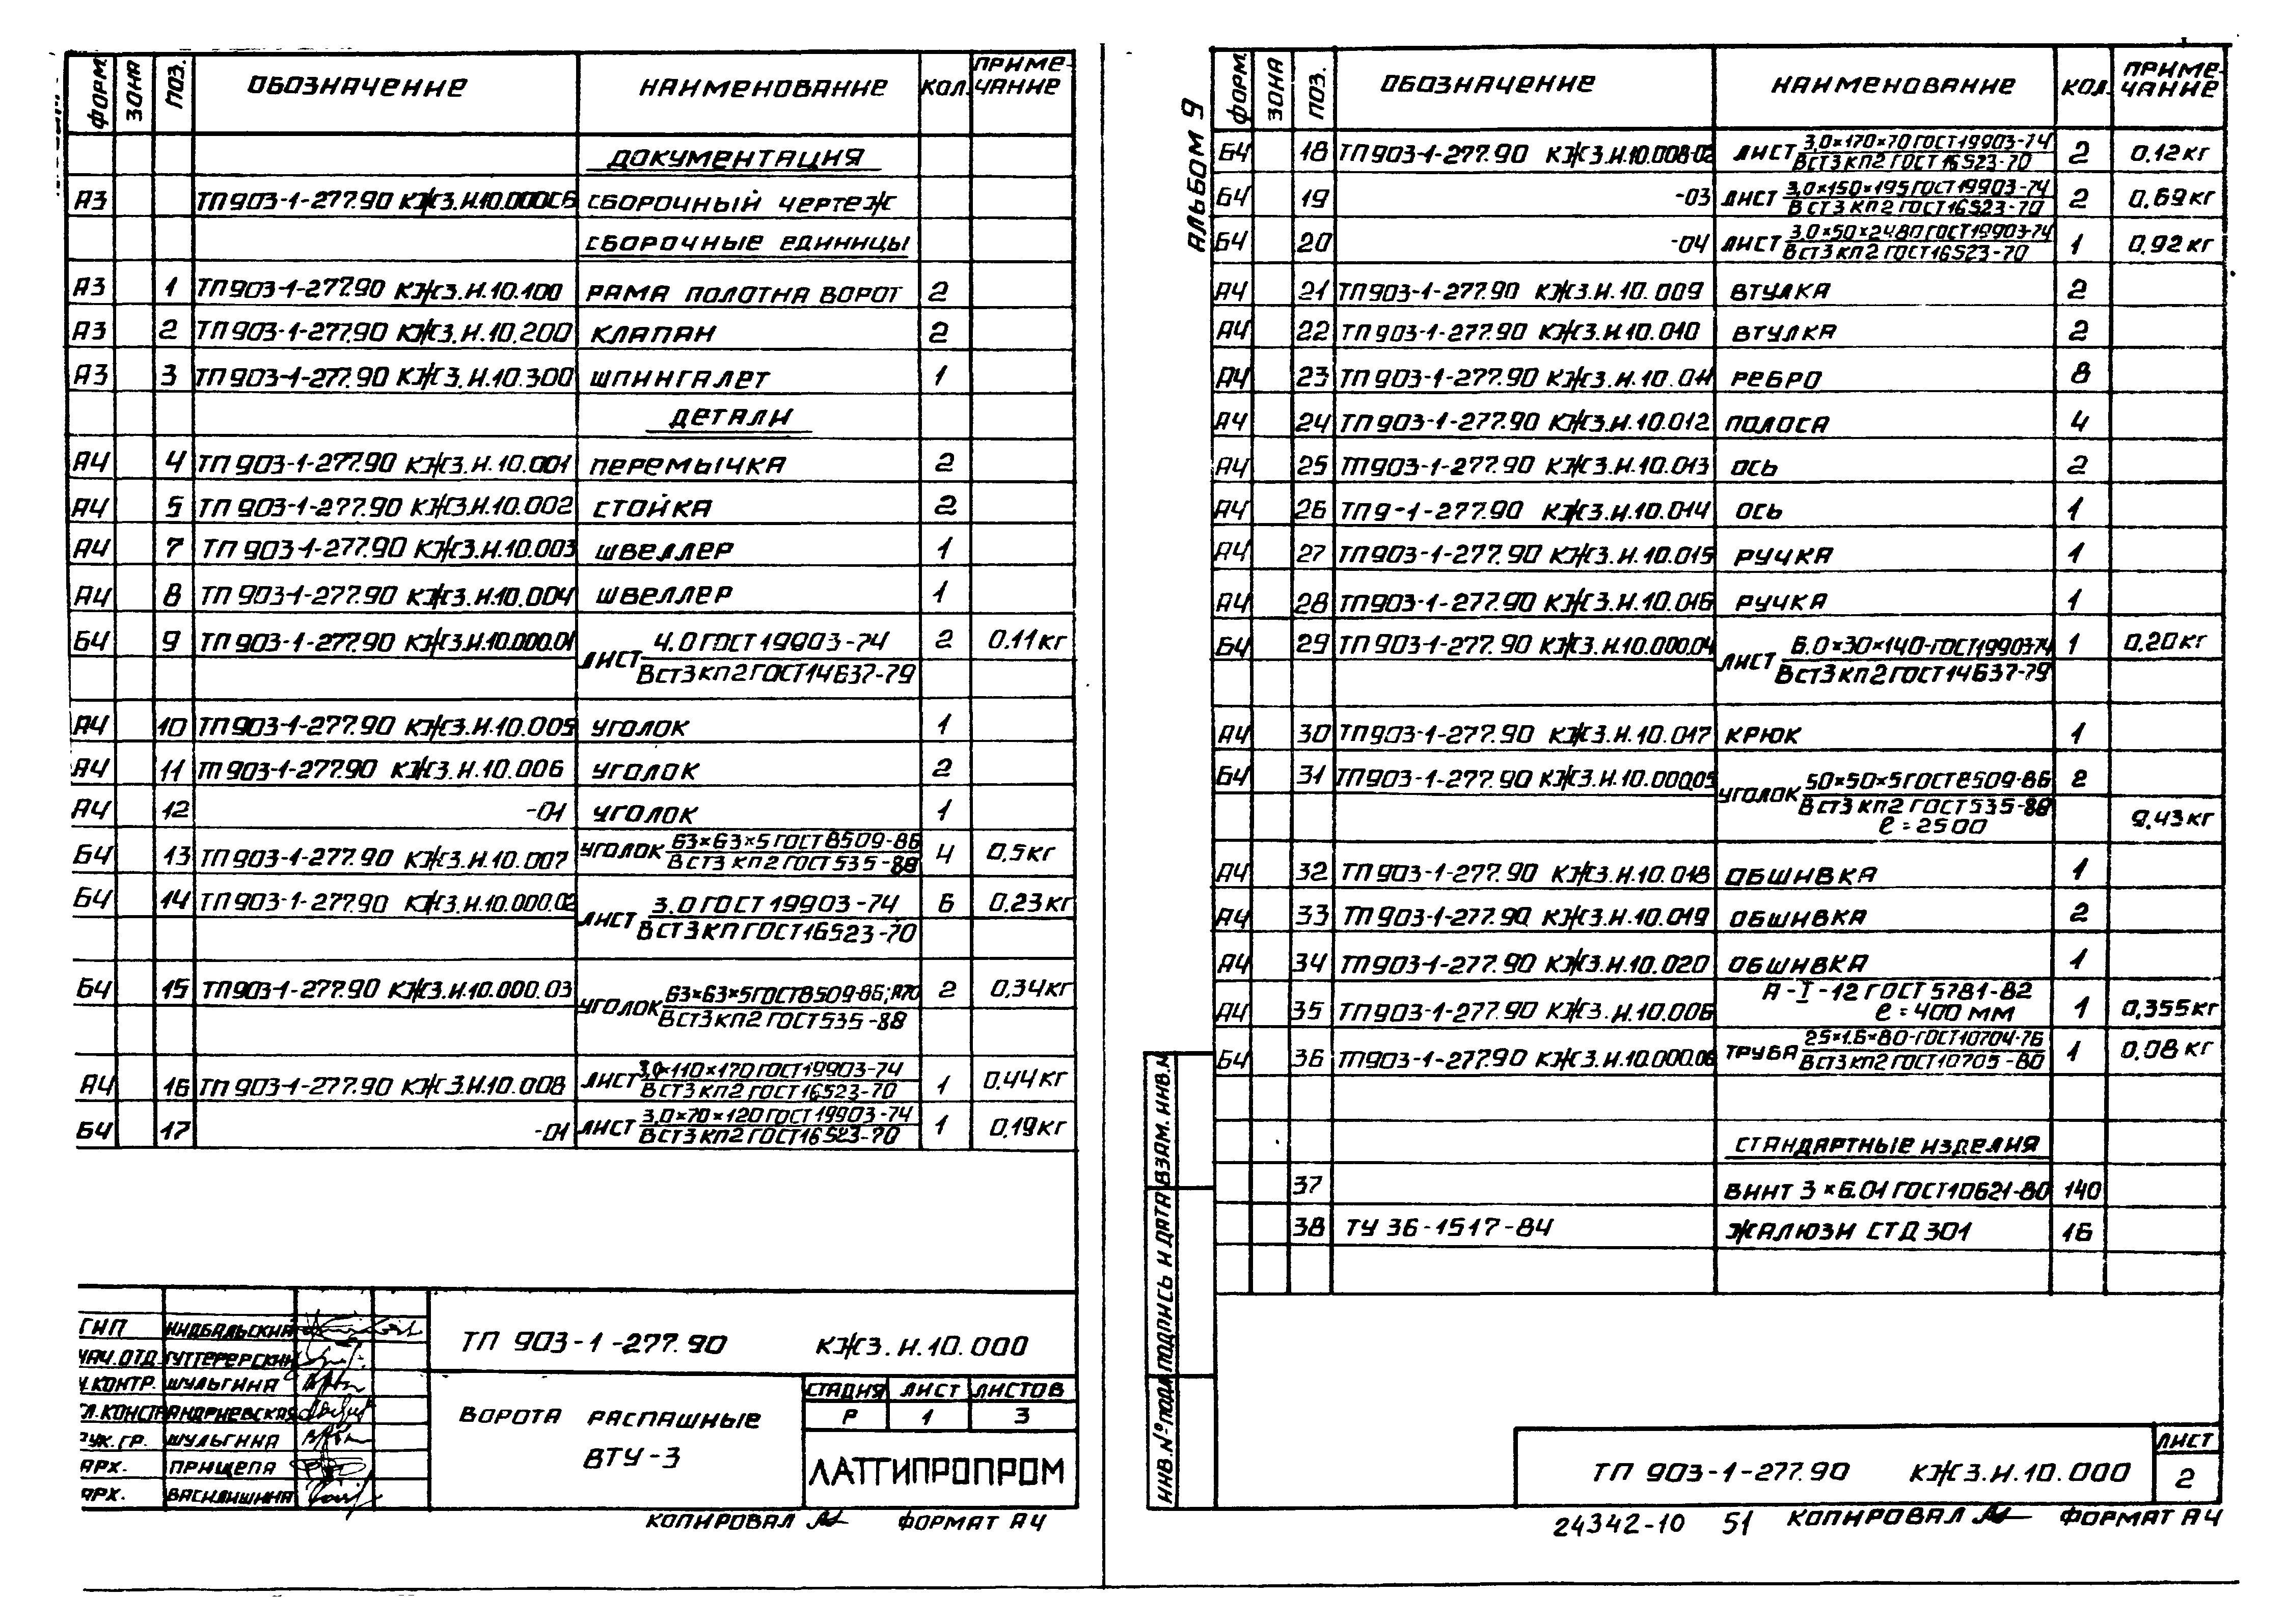 ФОРМ. ЗОНА ПОЗ. ОБОЗНАЧЕНИЕ НАИМЕНОВАНИЕ КОЛ. ПРИМЕ-ЧАНИЕ
ДОКУМЕНТАЦИЯ
А3 ТП 903-1-277.90 КЖ3.И.10.000СБ СБОРОЧНЫЙ ЧЕРТЕЖ
СБОРОЧНЫЕ ЕДИНИЦЫ
А3 1 ТП 903-1-277.90 КЖ3.И.10.100 РАМА ПОЛОТНА ВОРОТ 2
А3 2 ТП 903-1-277.90 КЖ3.И.10.200 КЛАПАН 2
А3 3 ТП 903-1-277.90 КЖ3.И.10.300 ШПИНГАЛЕТ 1
ДЕТАЛИ
А4 4 ТП 903-1-277.90 КЖ3.И.10.001 ПЕРЕМЫЧКА 2
А4 5 ТП 903-1-277.90 КЖ3.И.10.002 СТОЙКА 2
А4 7 ТП 903-1-277.90 КЖ3.И.10.003 ШВЕЛЛЕР 1
А4 8 ТП 903-1-277.90 КЖ3.И.10.004 ШВЕЛЛЕР 1
Б4 9 ТП 903-1-277.90 КЖ3.И.10.000.01 ЛИСТ 4.0 ГОСТ 19903-74 2 0.11 кг
ВСТ3КП2 ГОСТ14637-79
А4 10 ТП 903-1-277.90 КЖ3.И.10.005 УГОЛОК 1
А4 11 ТП 903-1-277.90 КЖ3.И.10.006 УГОЛОК 2
А4 12 -01 УГОЛОК 1
Б4 13 ТП 903-1-277.90 КЖ3.И.10.007 УГОЛОК 63×63×5 ГОСТ 8509-86 4 0,5кг
ВСТ3 КП2 ГОСТ 535-88
Б4 14 ТП 903-1-277.90 КЖ3.И.10.000.02 ЛИСТ 3.0 ГОСТ 19903-74 6 0.23 кг
ВСТ3КП ГОСТ16523-70
Б4 15 ТП 903-1-277.90 КЖ3.И.10.000.03 УГОЛОК 63×63×5ГОСТ8509-86; 2 0,34кг
ВСТ3КП2 ГОСТ535-88
А4 16 ТП 903-1-277.90 КЖ3.И.10.008 ЛИСТ 3,0×110×170 ГОСТ19903-74 1 0,44 кг
ВСТ3КП2 ГОСТ16523-70
Б4 17 -01 ЛИСТ 3,0×70×120 ГОСТ 19903-74 1 0,19кг
ВСТ3КП2 ГОСТ16523-70
ГИП
НАЧ.ОТД.
Н.КОНТР. ШУЛЬГИНА
ГЛ.КОНСТР АНДРИЕВСКАЯ
РУК.ГР. ШУЛЬГИНА
АРХ. ПРИЩЕПА
АРХ. ВАСИЛИШИНА
ТП 903-1-277.90 КЖ3.И.10.000
ВОРОТА РАСПАШНЫЕ
ВТУ-3
СТАДИЯ ЛИСТ ЛИСТОВ
Р 1 3
ЛАТГИПРОПРОМ
КОПИРОВАЛ ФОРМАТ А4
АЛЬБОМ 9
ФОРМ. ЗОНА ПОЗ. ОБОЗНАЧЕНИЕ НАИМЕНОВАНИЕ КОЛ. ПРИМЕ-ЧАНИЕ
Б4 18 ТП 903-1-277.90 КЖ3.И.10.008-02 ЛИСТ 3,0×170×70 ГОСТ19903-74 2 0.12 кг
ВСТ3КП2 ГОСТ 16523-70
Б4 19 -03 ЛИСТ 3,0×150×195 ГОСТ 19903-74 2 0,69 кг
ВСТ3КП2 ГОСТ16523-70
Б4 20 -04 ЛИСТ 3.0×50×2480 ГОСТ19903-74 1 0,92 кг
ВСТ3КП2 ГОСТ16523-70
А4 21 ТП 903-1-277.90 КЖ3.И.10.009 ВТУЛКА 2
А4 22 ТП 903-1-277.90 КЖ3.И.10.010 ВТУЛКА 2
А4 23 ТП 903-1-277.90 КЖ3.И.10.011 РЕБРО 8
А4 24 ТП 903-1-277.90 КЖ3.И.10.012 ПОЛОСА 4
А4 25 ТП 903-1-277.90 КЖ3.И.10.013 ОСЬ 2
А4 26 ТП 9-1-277.90 КЖ3.И.10.014 ОСЬ 1
А4 27 ТП 903-1-277.90 КЖ3.И.10.015 РУЧКА 1
А4 28 ТП 903-1-277.90 КЖ3.И.10.016 РУЧКА 1
Б4 29 ТП 903-1-277.90 КЖ3.И.10.000.04 ЛИСТ 6.0×30×140-ГОСТ19903-74 1 0,20кг
ВСТ3КП2 ГОСТ14637-79
А4 30 ТП 903-1-277.90 КЖ3.И.10.017 КРЮК 1
Б4 31 ТП 903-1-277.90 КЖ3.И.10.000.05 УГОЛОК 50×50×5 ГОСТ8509-86 2
ВСТ3 КП2 ГОСТ535-88
ℓ=2500 9,43кг
А4 32 ТП 903-1-277.90 КЖ3.И.10.018 ОБШИВКА 1
А4 33 ТП 903-1-277.90 КЖ3.И.10.019 ОБШИВКА 2
А4 34 ТП 903-1-277.90 КЖ3.И.10.020 ОБШИВКА 1
А-I-12 ГОСТ 5781-82
А4 35 ТП 903-1-277.90 КЖ3.И.10.006 ℓ=400 ММ 1 0,355кг
Б4 36 ТП 903-1-277.90 КЖ3.И.10.000.06 ТРУБА 25×1.6×80-ГОСТ10704-76 1 0.08 кг
ВСТ3КП2 ГОСТ10705-80
СТАНДАРТНЫЕ ИЗДЕЛИЯ
37 ВИНТ 3×6.01 ГОСТ10621-80 140
38 ТУ 36-1517-84 ЖАЛЮЗИ СТД 301 16
ВЗАМ. ИНВ.N
ПОДПИСЬ И ДАТА
ИНВ.№ ПОДЛ.
ТП 903-1-277.90 КЖ3.И.10.000
ЛИСТ
2
24342-10 51 КОПИРОВАЛ ФОРМАТ А4